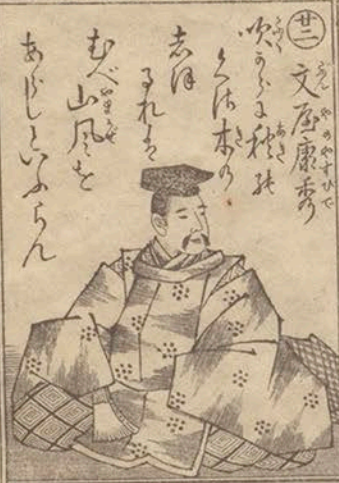 廿二
文屋康秀
ぶんやのやすひで
吹からに秋の
くさ木の
志ほ
るれは
むべ山風を
あらしといふらん